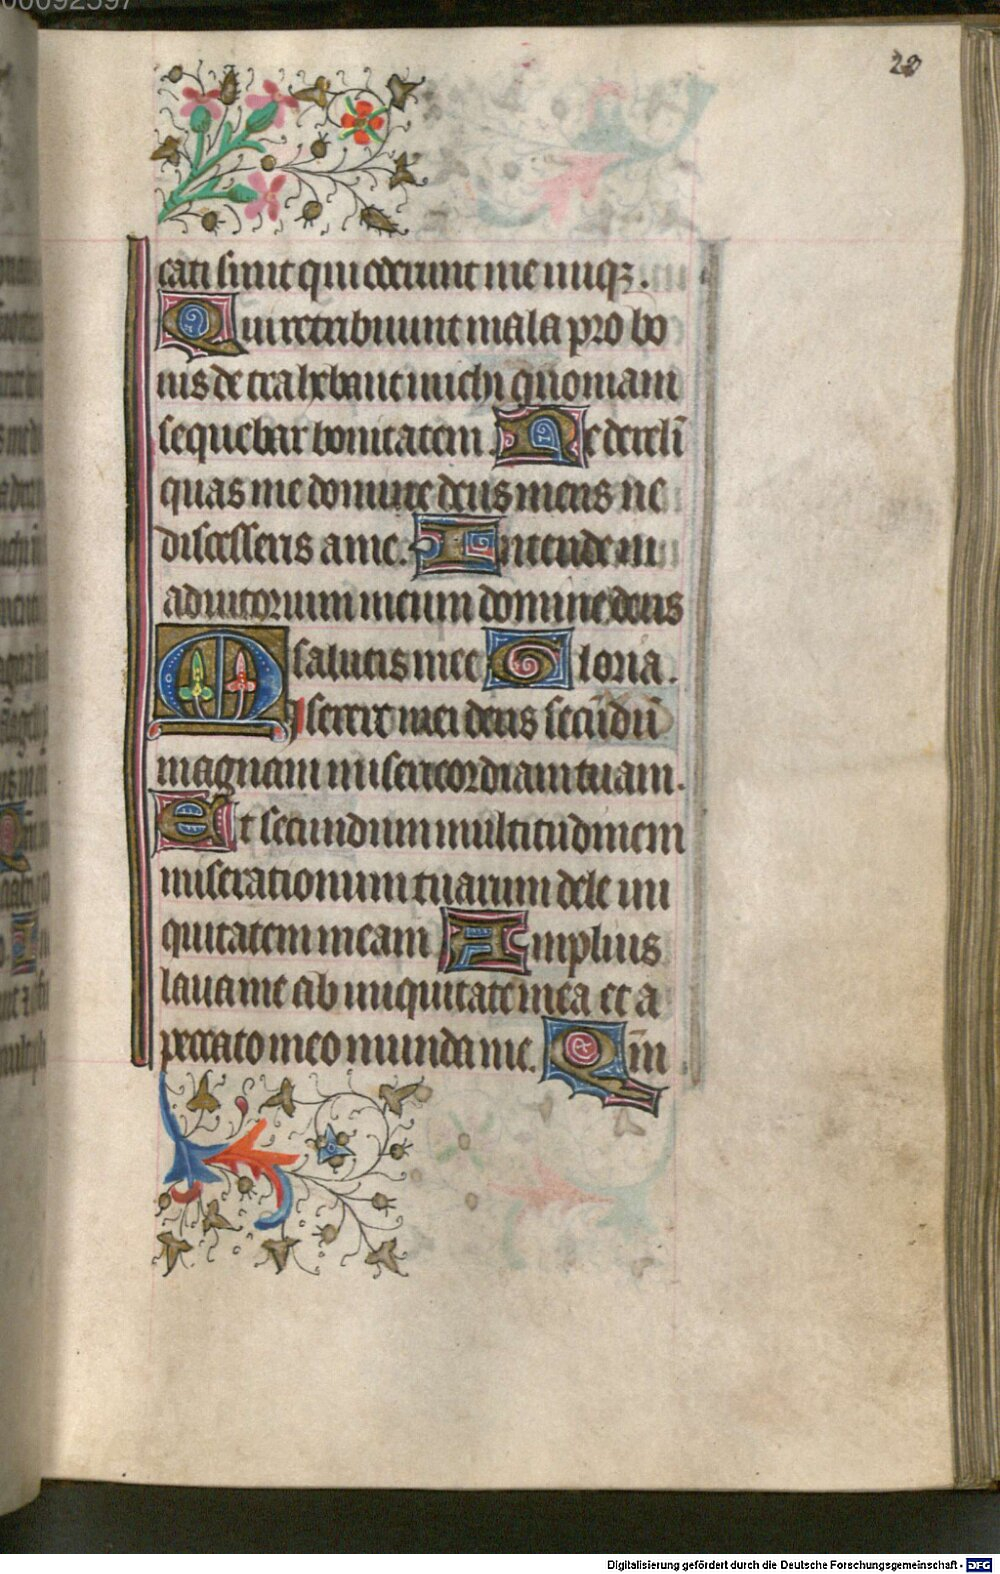 00092597
28
cati sunt qui oderunt me iniq₃.
Qui retribuunt mala pro bo
nis detrahebant michi quoniam
sequebar bonitatem. Ne dereli
quas me domine deus meus ne
discesseris a me. Intende in
adiutorium meum domine deus
salutis mee Gloria.
Miserere mei deus secundū
magnam misericordiam tuam.
Et secundum multitudinem
miserationum tuarum dele ini
quitatem meam Amplius
laua me ab iniquitate mea et a
peccato meo munda me. Qm̄
Digitalisierung gefördert durch die Deutsche Forschungsgemeinschaft - DFG